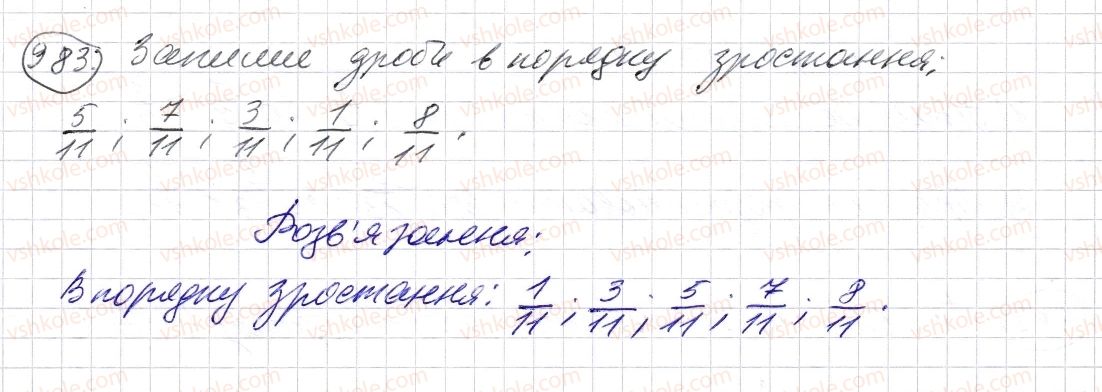 983. Запиши дроби в порядку зростання:
5/11 ; 7/11 ; 3/11 ; 1/11 ; 8/11 .
Розв'язання:
В порядку зростання: 1/11 ; 3/11 ; 5/11 ; 7/11 ; 8/11 .
vshkole.com